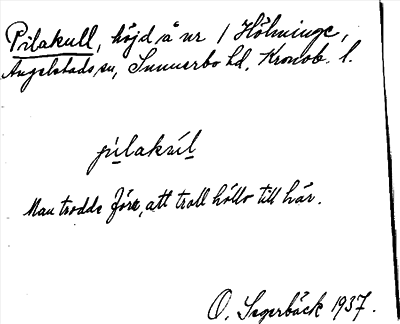 Pilakull, höjd å nr 1 Hölminge,
Angelstads sn, Sunnerbo hd, Kronob. l.
Man trodde förr, att troll höllo till här.
O. Segerbäck 1937.